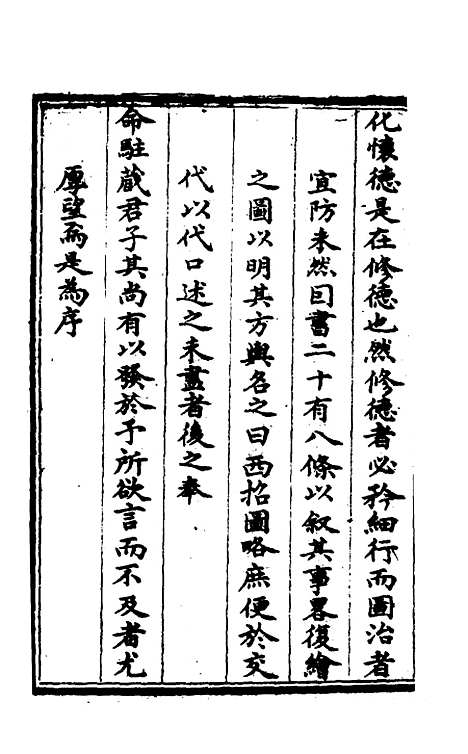 化懷德是在修德也然修德者必矜細行而圖治者
宜防未然囙書二十有八條以叙其事畧復繪
之圖以明其方輿名之曰西招圖略庶便於交
代以代口述之未盡者後之奉
命駐藏君子其尚有以發於予所欲言而不及者尤
厚望焉是為序